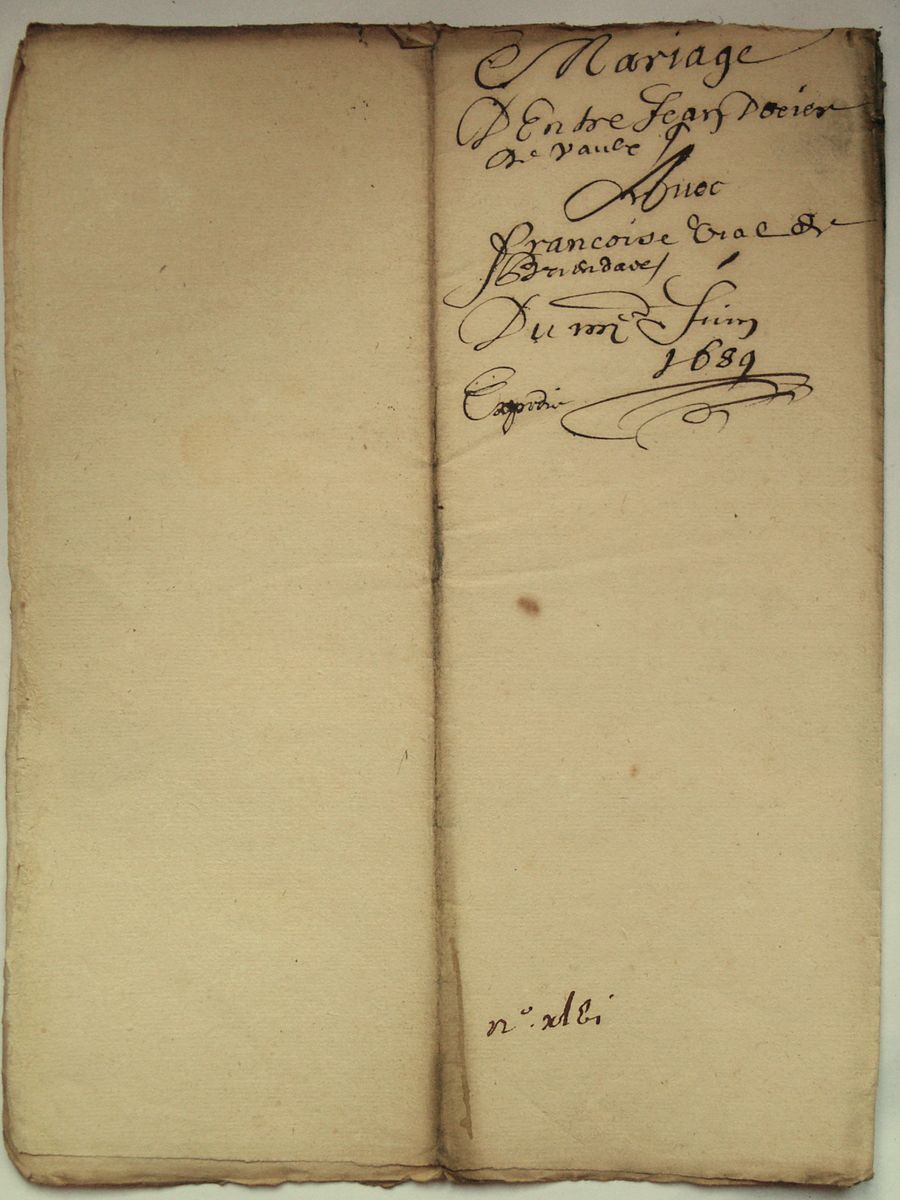 Mariage
D Entre Jean Docier
de vaux
Auec
francoise vial de
Briendave
Du mi^e Juin
1689
Expedie
n° xlvi